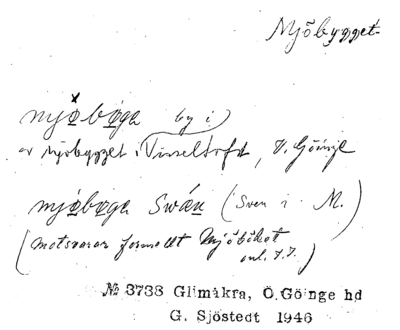 Njöbygget
njo̲bo̲ga by i
av Njöbygget i Visseltofta, V. Göinge
njo̲bo̲ga Swän (Sven i M.)
(motsvarar formellt Mjöbölet
enl. I.I.)
№ 3738 Glimåkra, Ö.Göinge hd
G. Sjöstedt 1946